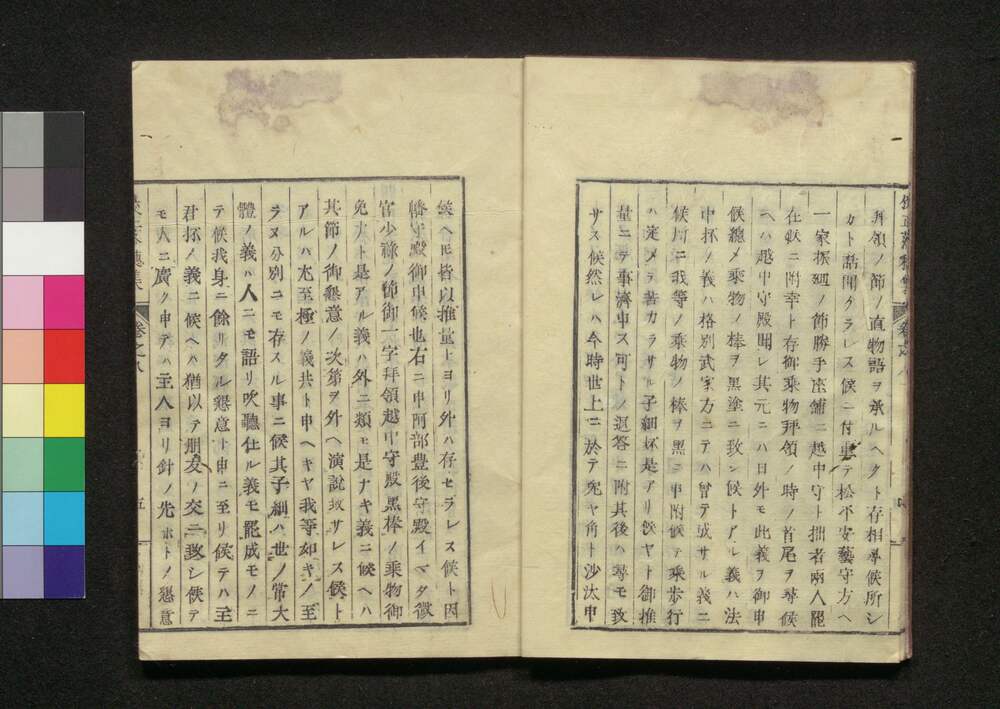 拜領ノ節ノ直物語ヲ承ルヘクト存相尋候所シ
カト話聞クラレス候ニ付テ松平安藝守方ヘ
一家振廻ノ節勝手座舗ニ越中守ト拙者兩人罷
在候ニ附幸ト存御乘物拜領ノ時ノ首尾ヲ尋候
ヘハ越中守殿聞レ其元ニハ日外モ此義ヲ御申
候總メ乘物ノ棒ヲ黒塗ニ致シ候トアル義ハ法
中抔ノ義ハ格別武家方ニテハ曾テ成サル義ニ
候所ニ我等ノ乘物ノ棒ヲ黒ニ申附候テ乘步行
ハ定メテ若カラサル子細抔是アリ候ヤト御推
量ニテ事濟申ス可トノ返答ニ附其後ハ尋モ致
サス候然レハ今時世上ニ於テ兎ヤ角ト沙汰申
候ヘ𪜈皆以推量ヨリ外ハ存セラレス候ト因
幡守殿御申候也右ニ申阿部豊後守殿イマタ微
官少祿ノ節御一字拜領越中守殿黒棒ノ乘物御
免ナト是アル義ハ外ニ類モ是ナキ義ニ候ヘハ
其節ノ御懇意ノ次第ヲ外ヘ演說致サレス候ト
アルハ尤至極ノ義共ト申ヘキヤ我等如キノ至
ラヌ分別ニモ存スル事ニ候其子細ハ世ノ常大
體ノ義ハ人ニモ語リ吹聽仕ル義モ罷成モノニ
テ候我身ニ餘リタル懇意ト申ニ至リ候テハ主
君抔ノ義ニ候ヘハ猶以テ朋友ノ交ニ致シ候テ
モ人ニ廣ク申テハ主人ヨリ針ノ先ホトノ懇意
卷之八
五